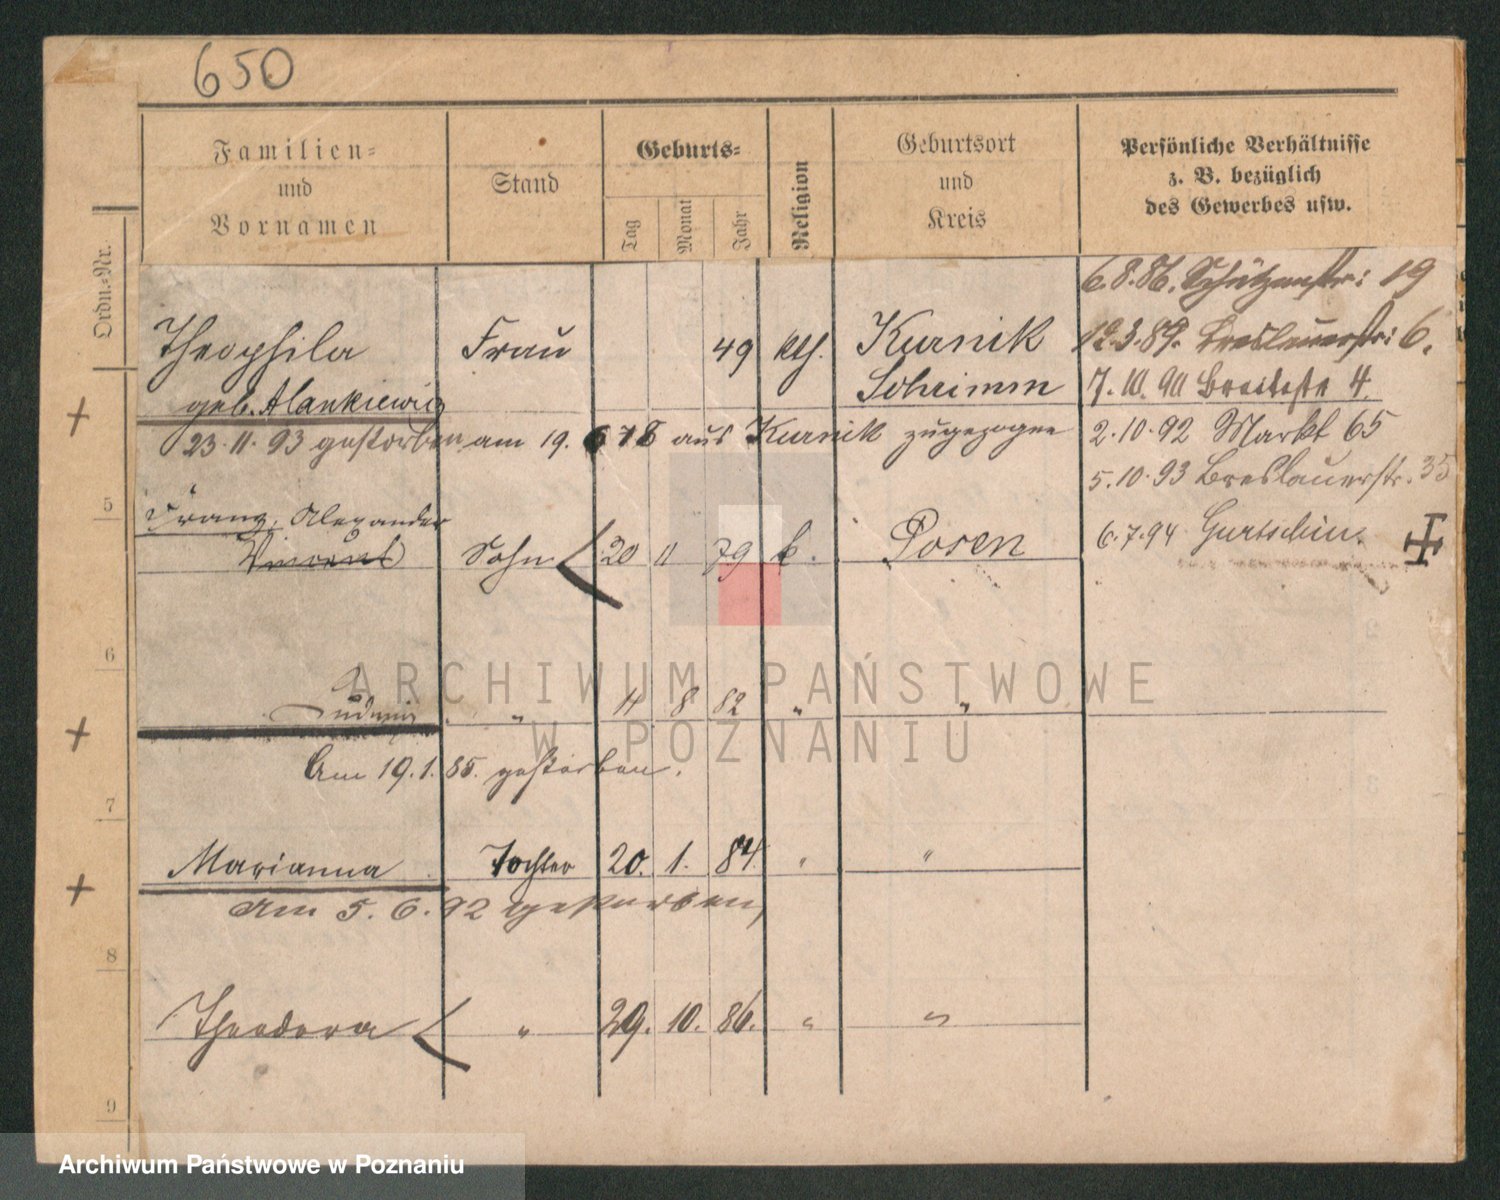 650
Familien=
und
Vornamen
Stand
Geburts=
Tag
Monat
Jahr
Religion
Geburtsort
und
Kreis
Persönliche Verhältnisse
z. B. bezüglich
des Gewerbes usw.
Ordn.=Nr.
6.8.86. Schützenstr: 19
Theophila Frau 49 kth. Kurnik 12.3.89. Breslauerstr: 6.
geb. Schrimm 7.10.90 Breitestr 4.
23.11.93 gestorben am 19. 6 78 aus Kurnik zugezogen 2.10.92 Markt 65
5.10.93 Breslauerstr. 35
5
Franz, Alexander
Vincent Sohn 20 11 79 k. Posen 6.7.94 Gurtschin.
6
Ludwig " 11 8 82 " "
Am 19.1.85. gestorben.
7
Marianna Tochter 20. 1. 84. " "
Am 5.6.92 gestorben,
8
Theodora " 29. 10. 86. " "
9
ARCHIWUM PAŃSTWOWE
W POZNANIU
Archiwum Państwowe w Poznaniu